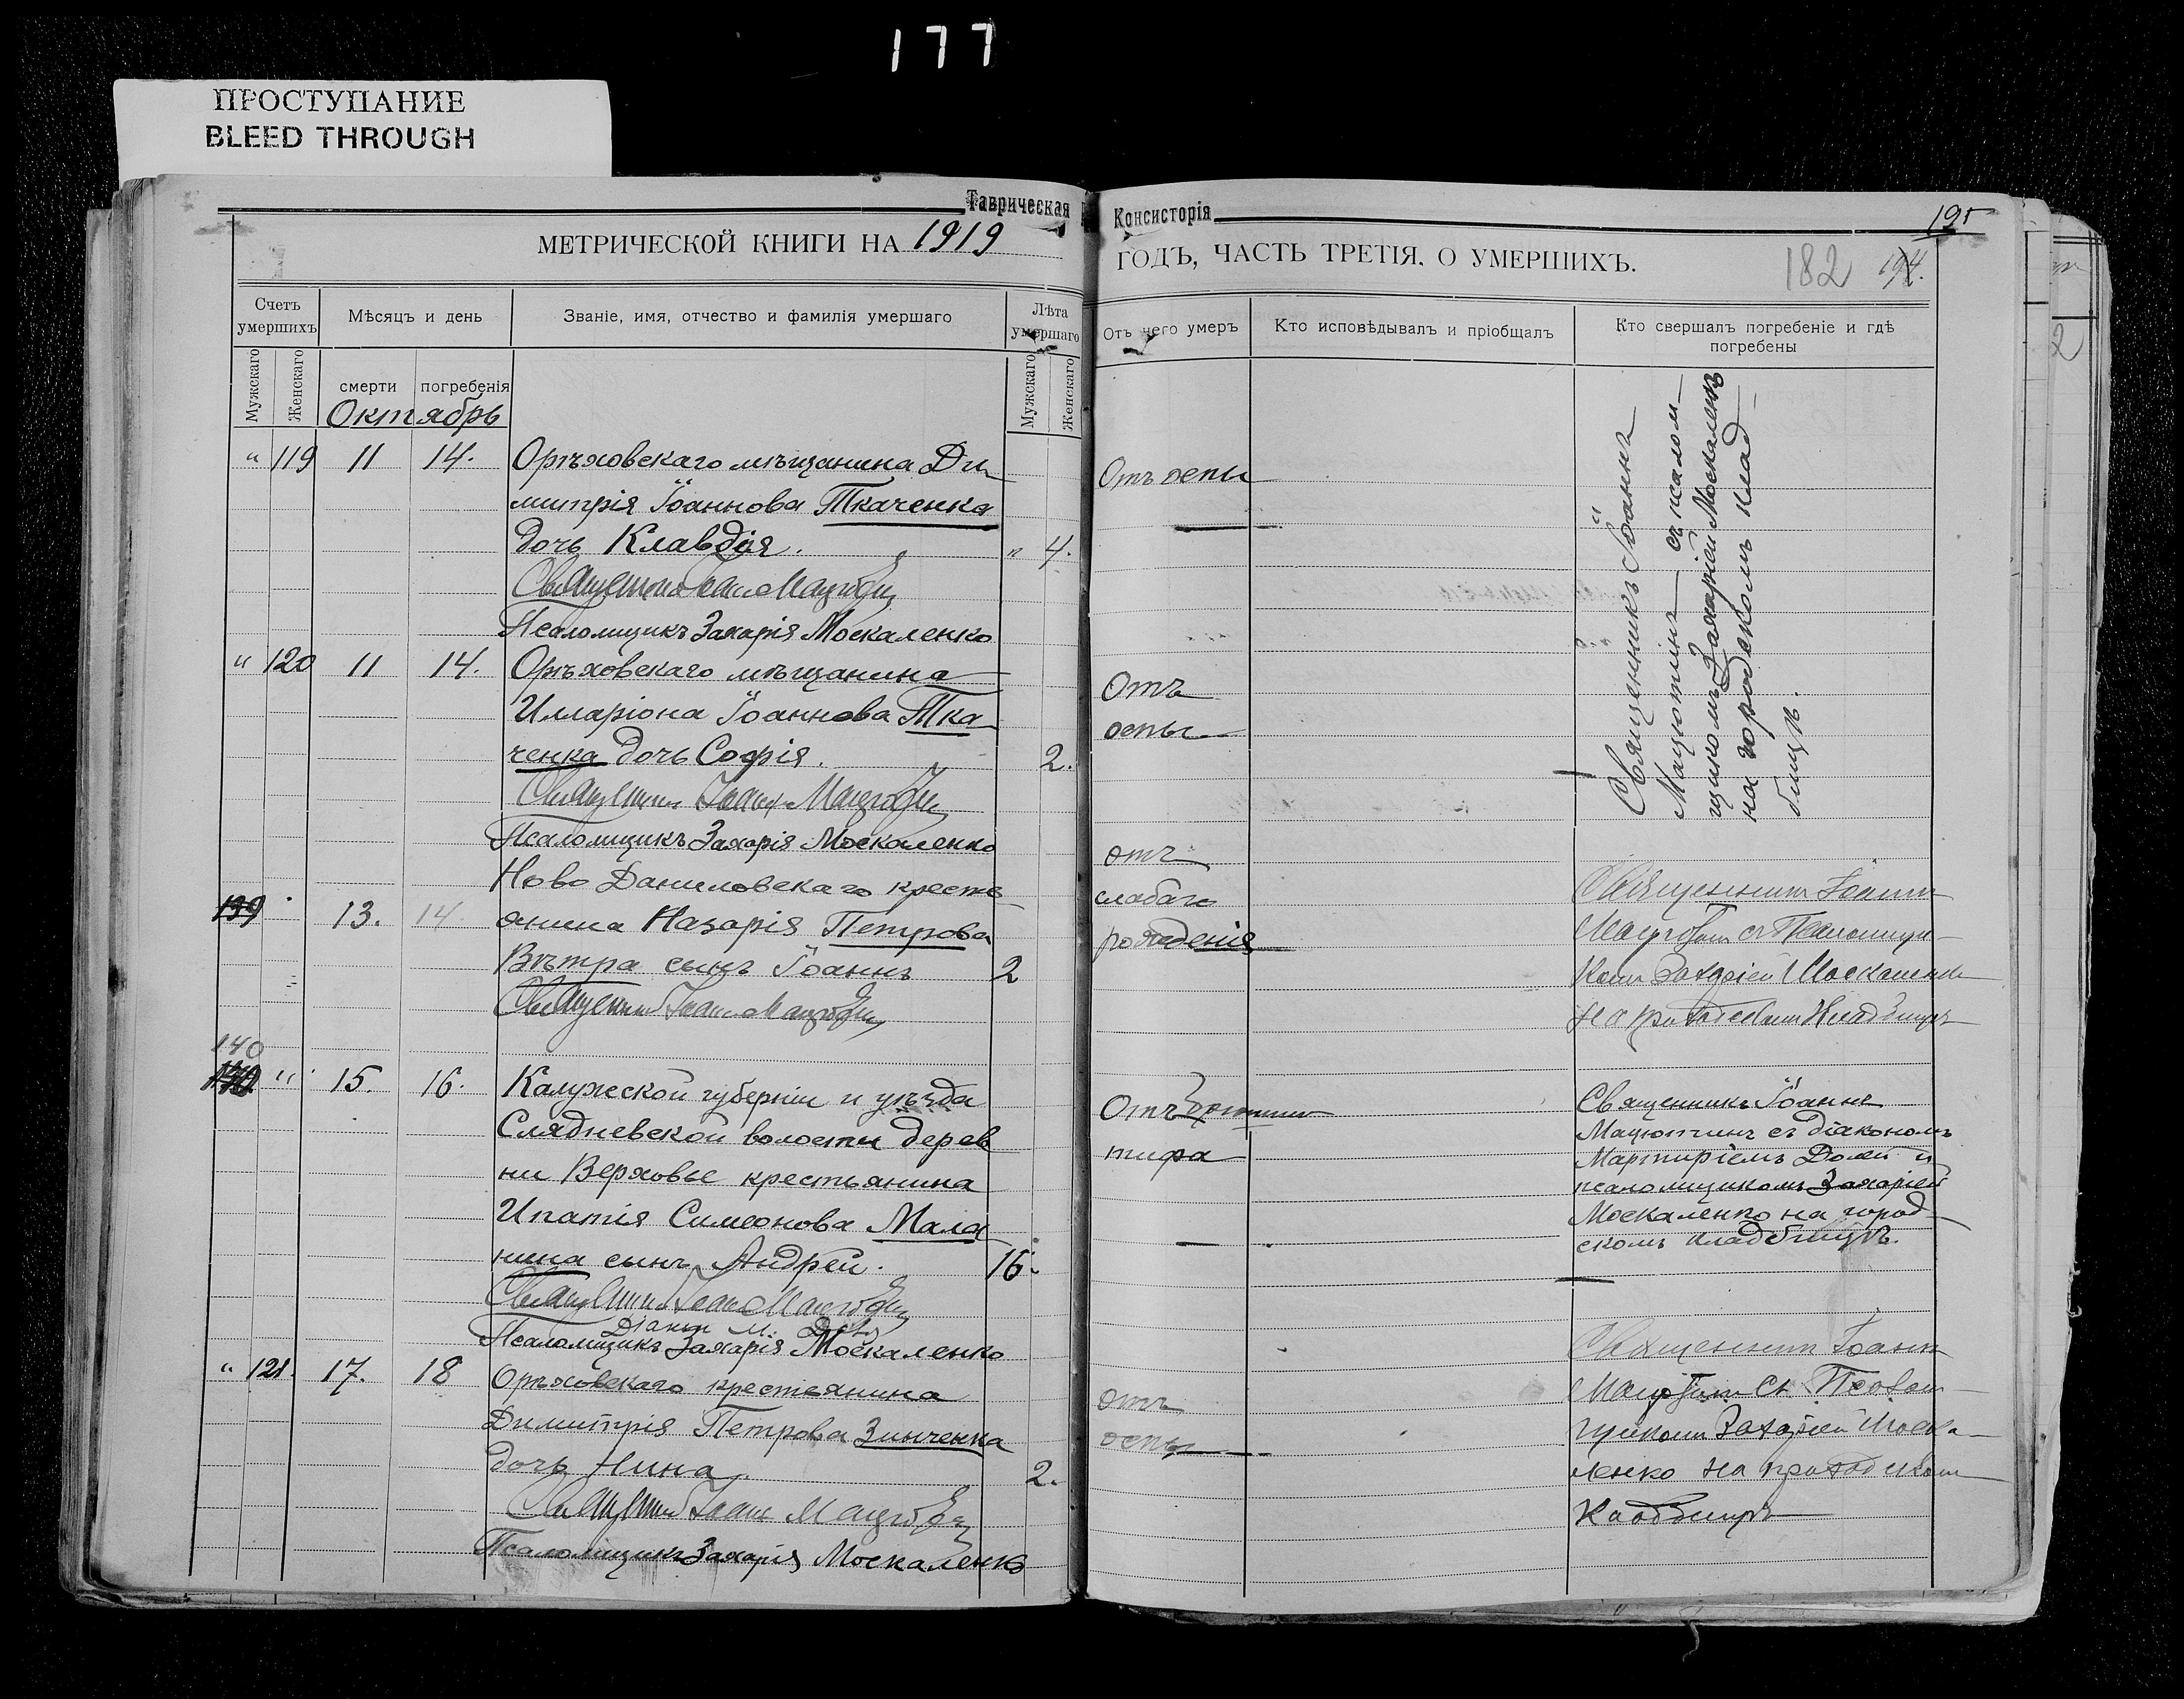 177
ПРОСТУПАНИЕ
BLEED THROUGH
Таврическая
Консисторія
195
МЕТРИЧЕСКОЙ КНИГИ НА 1919
ГОДЪ, ЧАСТЬ ТРЕТІЯ, О УМЕРШИХЪ.
182
194.
Счетъ умершихъ
Мѣсяцъ и день
Званіе, имя, отчество и фамилія умершаго
Лѣта умершаго
Отъ чего умеръ
Кто исповѣдывалъ и пріобщалъ
Кто свершалъ погребеніе и гдѣ погребены
Мужскаго
Женскаго
смерти
погребенія
Мужскаго
Женскаго
Октябрь
" 119 11 14.
Орѣховскаго мѣщанина Ди
митрія Іоаннова Ткаченка
дочь Клавдія. " 4.
Священникъ Іоаннъ Мацютинъ
Псаломщикъ Захарія Москаленко
Отъ оспы
Священникъ Іоаннъ
Мацютинъ съ псалом-
щикомъ Захаріей Москаленко
на городскомъ клад
бищѣ.
" 120 11 14.
Орѣховскаго мѣщанина
Илларіона Іоаннова Тка
ченка дочь Софія. 2.
Священникъ Іоаннъ Мацютинъ
Псаломщикъ Захарія Москаленко
Отъ
оспы
139 13. 14
Ново Даниловскаго кресть
янина Назарія Петрова
Вѣтра сынъ Іоаннъ 2
Священникъ Іоаннъ Мацютинъ
отъ
слабаго
рожденія
Священникъ Іоаннъ
Мацютинъ съ Псаломщи
комъ Захаріей Москаленко
на приходскомъ кладбищѣ
140
" 15. 16.
Калужской губерніи и уѣзда
Слядневской волости дерев
ни Верховье крестьянина
Ипатія Симеонова Мала
нина сынъ Андрей. 16.
Священникъ Іоаннъ Мацютинъ
Діаконъ М.
Псаломщикъ Захарія Москаленко
Отъ
тифа
Священникъ Іоаннъ
Мацютинъ съ діакономъ
Мартиріемъ Долей и
псаломщикомъ Захаріей
Москаленко на город
скомъ кладбищѣ.
" 121. 17. 18
Орѣховскаго крестьянина
Димитрія Петрова Зинченка
дочь Нина. 2.
Священникъ Іоаннъ Мацютинъ
Псаломщикъ Захарія Москаленко
отъ
оспы
Священникъ Іоаннъ
Мацютинъ съ Псалом
щикомъ Захаріей Моска
ленко на приходскомъ
Кладбищѣ
2